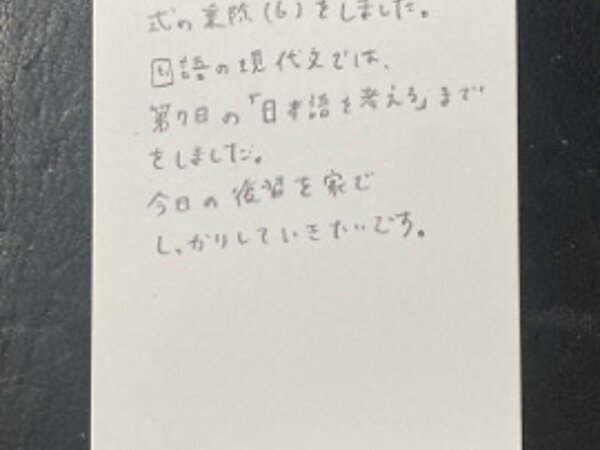 式の乗除(6)をしました。
国語の現代文では、
第7回の「日本語を考える」まで
をしました。
今日の復習を家で
しっかりしていきたいです。